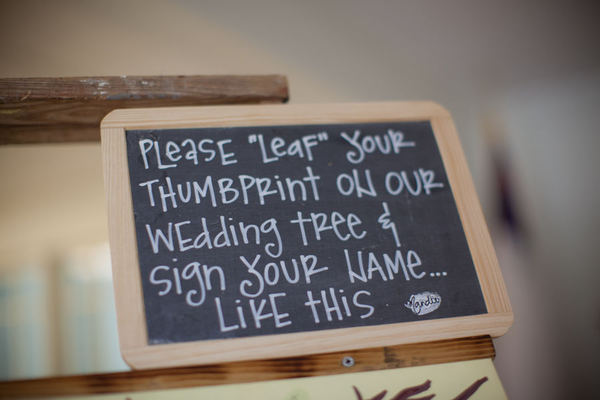 PLEASE "LEAF" YOUR
THUMBPRINT ON OUR
WEDDING TREE &
SIGN YOUR NAME...
LIKE THIS